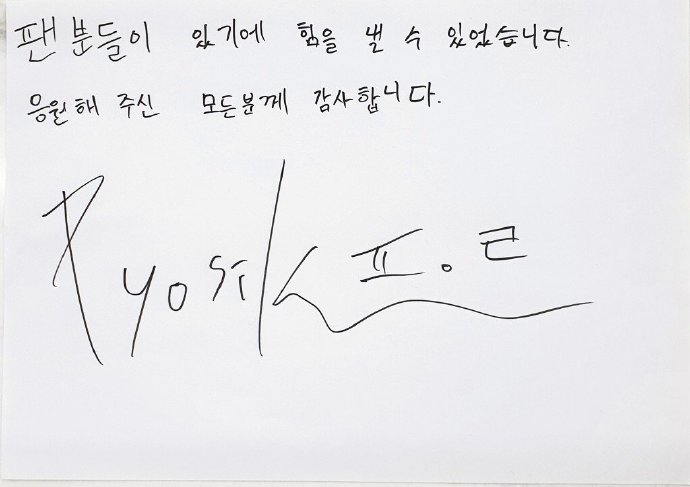 팬분들이 있기에 힘을 낼 수 있었습니다.
응원해 주신 모든분께 감사합니다.
Ryosik ㅍ.ㄹ